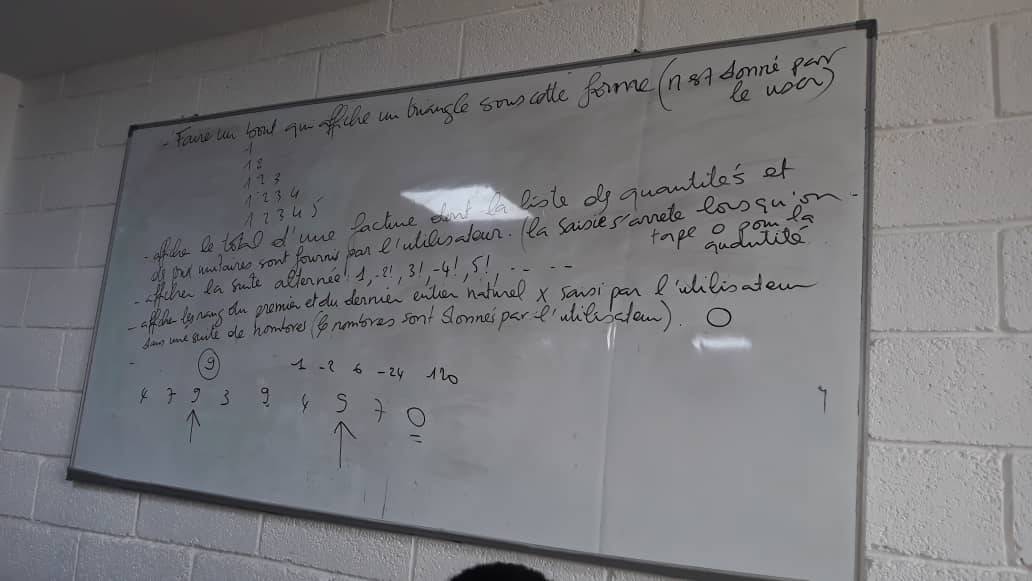 - Faire un bout qui affiche un triangle sous cette forme (n est donné par
le user)
1
1 2
1 2 3
1 2 3 4
1 2 3 4 5
- affiche le total d'une facture dont la liste des quantités et
de prix unitaires sont fournis par l'utilisateur. (la saisie s'arrete lorsqu'on
tape 0 pour la
quantité
- afficher la suite alternée! 1, -2!, 3!, -4!, 5!, -- --
- affiche les rang du premier et du dernier entier naturel x saisi par l'utilisateur
dans une suite de nombres (les nombres sont donnés par l'utilisateur). 0
-
9 1 -2 6 -24 120
4 7 9 3 9 4 9 7 0